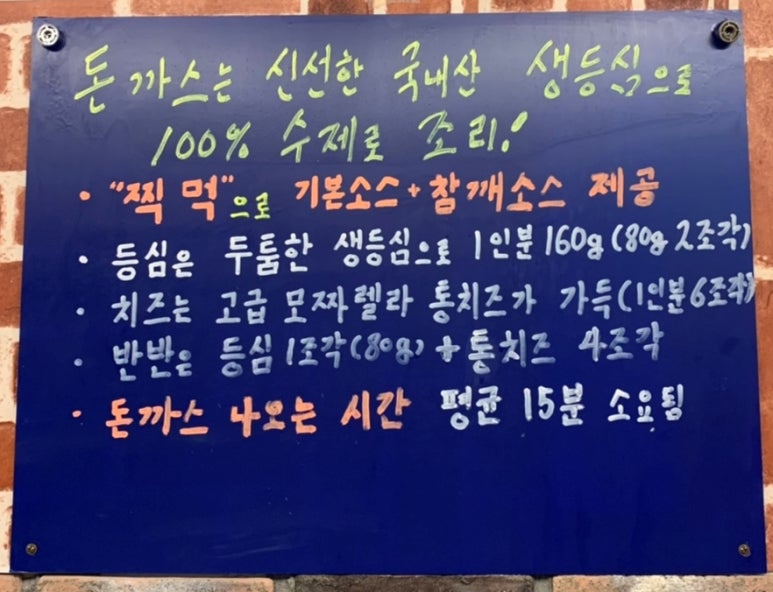 돈까스는 신선한 국내산 생등심으로
100% 수제로 조리!
· "찍먹"으로 기본소스+참깨소스 제공
· 등심은 두툼한 생등심으로 1인분 160g (80g 2조각)
· 치즈는 고급 모짜렐라 통치즈가 가득(1인분 6조각)
· 반반은 등심 1조각(80g) + 통치즈 4조각
· 돈까스 나오는 시간 평균 15분 소요됨